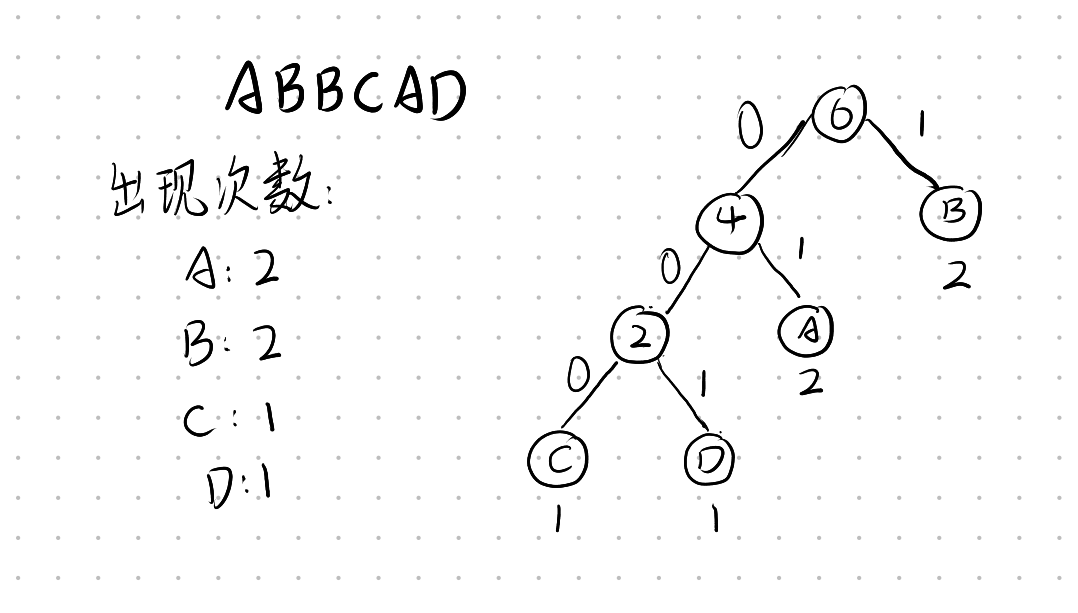 ABBCAD
出现次数:
A: 2
B: 2
C: 1
D: 1
6
0 1
4 B
2
0 1
2 A
2
0 1
C D
1 1